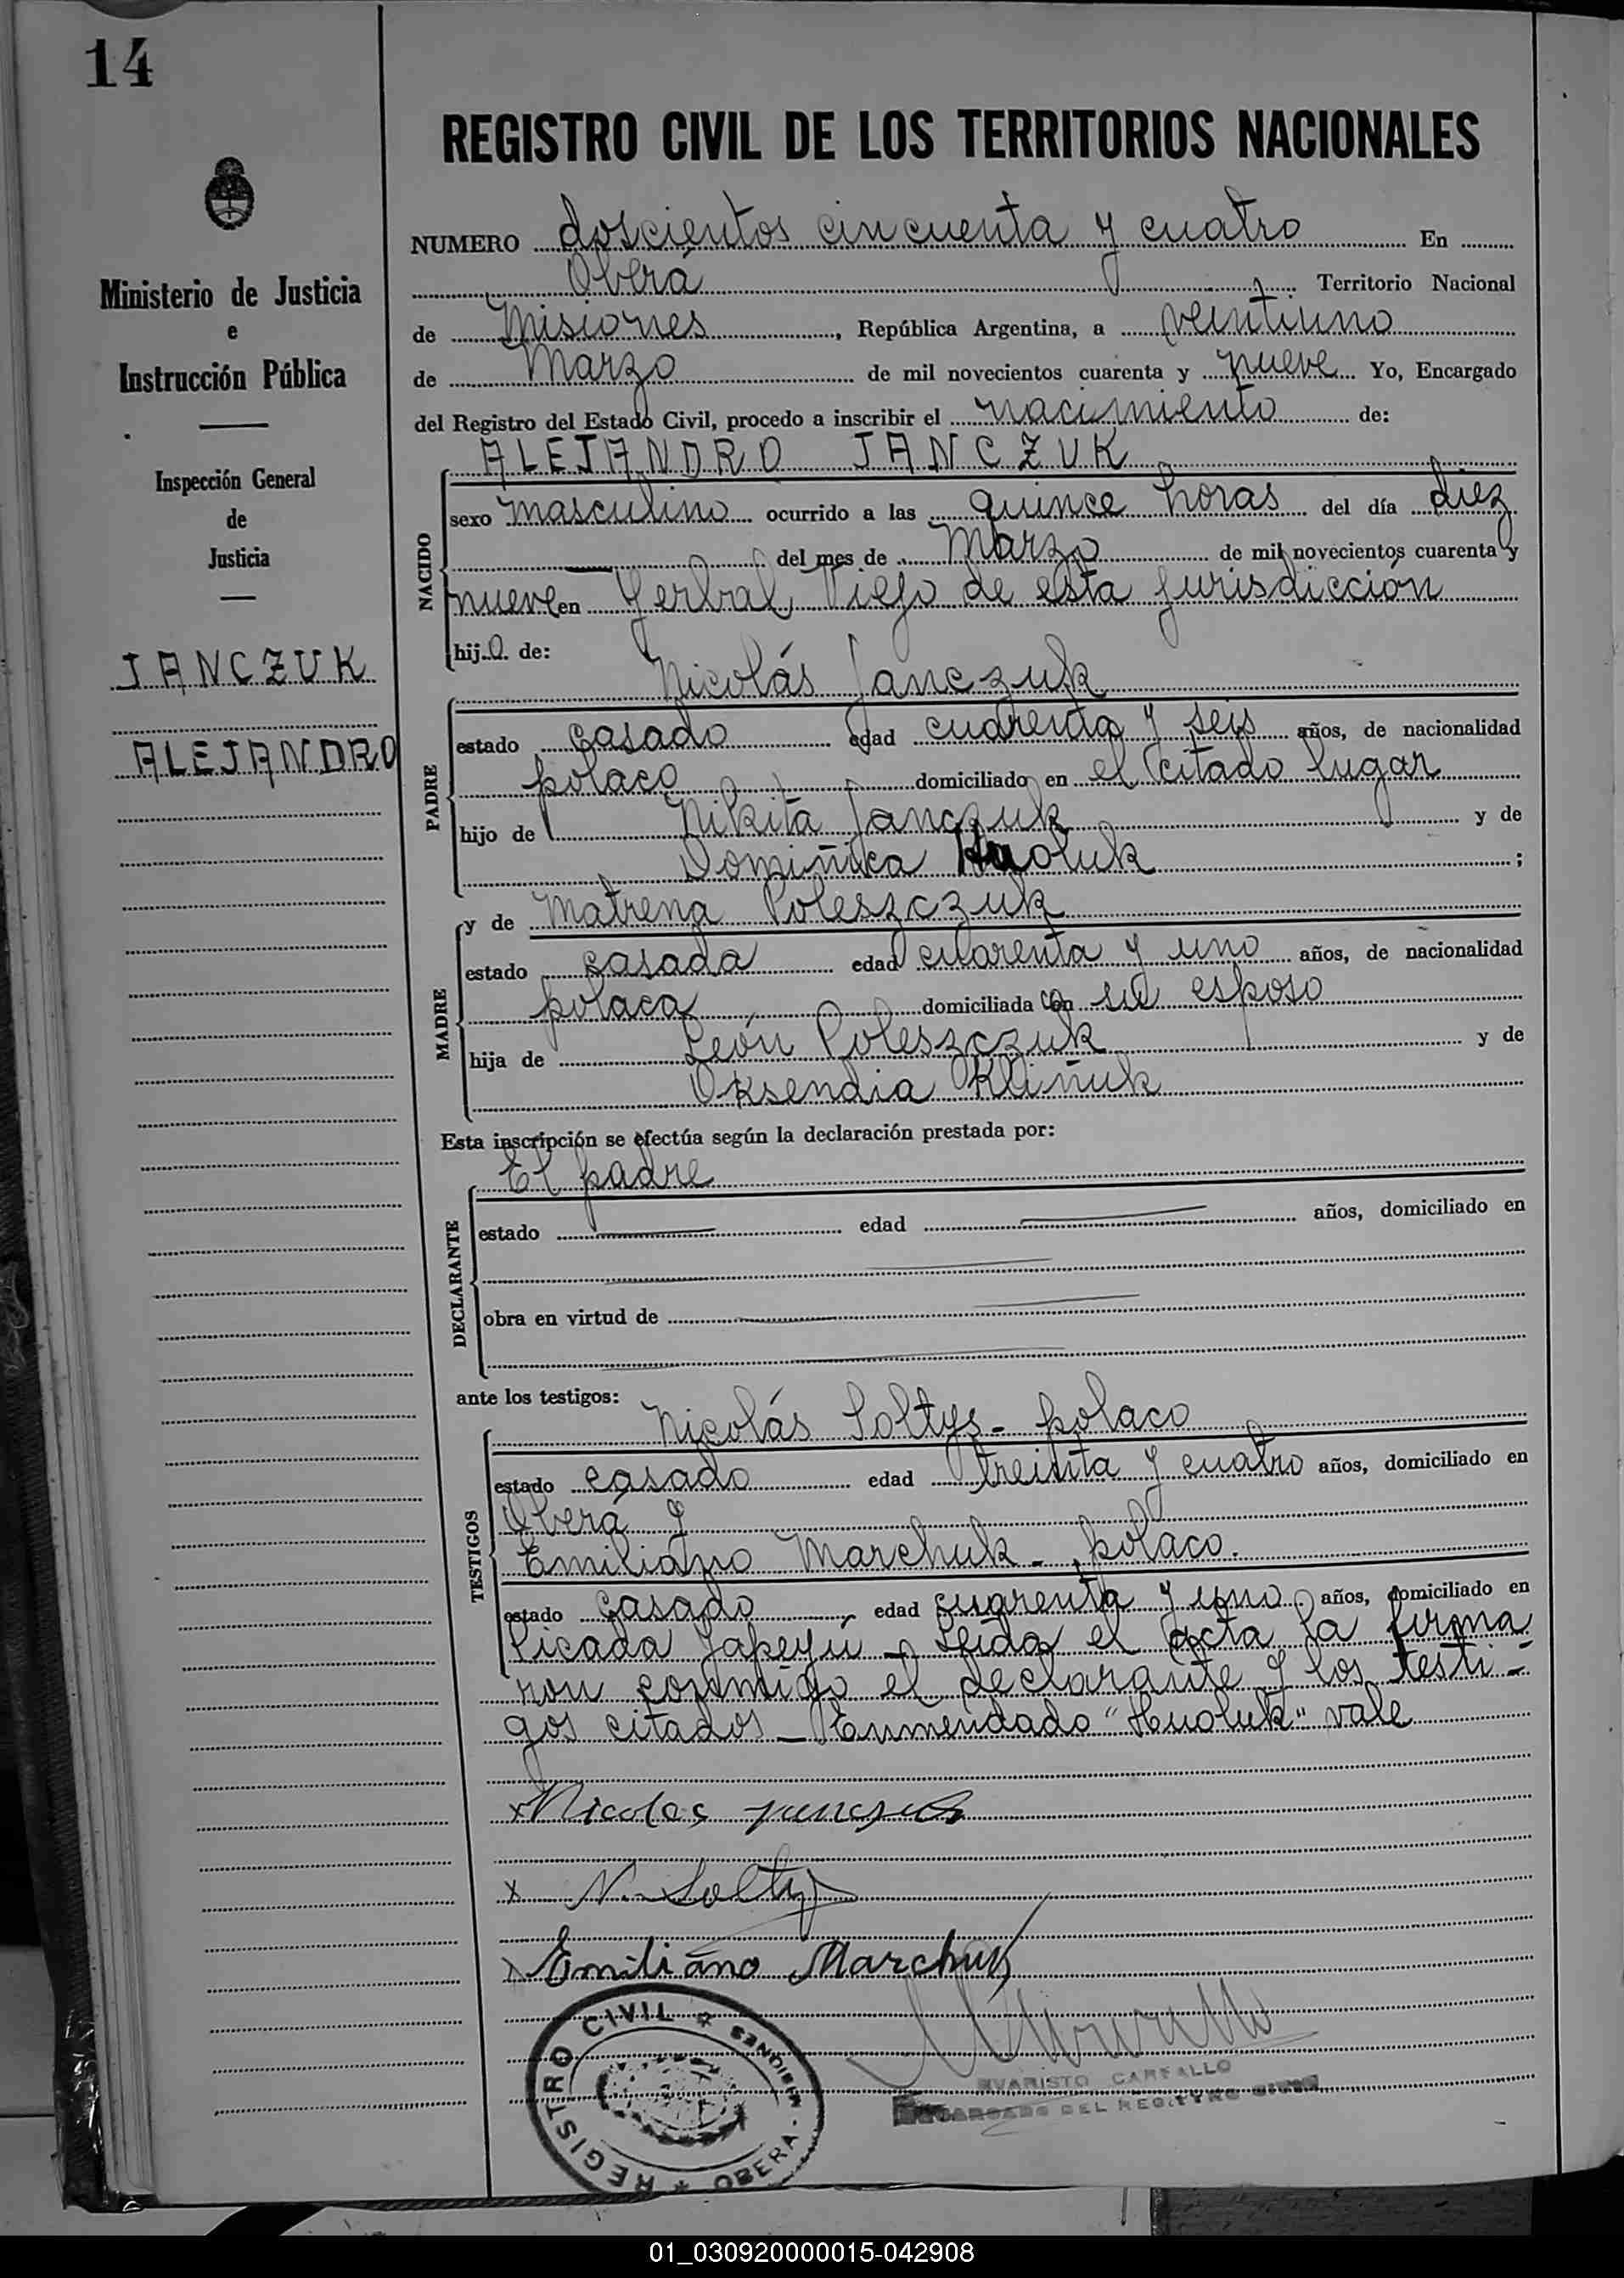 14
REGISTRO CIVIL DE LOS TERRITORIOS NACIONALES
Ministerio de Justicia
e
Instrucción Pública
Inspección General
de
Justicia
JANCZUK
ALEJANDRO
NUMERO doscientos cincuenta y cuatro En
Oberá Territorio Nacional
de Misiones, República Argentina, a veintiuno
de Marzo de mil novecientos cuarenta y nueve Yo, Encargado
del Registro del Estado Civil, procedo a inscribir el nacimiento de:
ALEJANDRO JANCZUK
NACIDO
sexo masculino ocurrido a las quince horas del día diez
del mes de Marzo de mil novecientos cuarenta y
nueve en Yerbal Viejo de esta jurisdicción
hijo de:
PADRE
Nicolás Janczuk
estado casado edad cuarenta y seis años, de nacionalidad
polaco domiciliado en el citado lugar
hijo de Nikita Janczuk y de
Dominika Huoluk ;
MADRE
y de Matrena Poleszczuk
estado casada edad cuarenta y uno años, de nacionalidad
polaca domiciliada con su esposo
hija de León Poleszczuk y de
Oksendia Kliñuk
Esta inscripción se efectúa según la declaración prestada por:
DECLARANTE
El padre
estado edad años, domiciliado en
obra en virtud de
ante los testigos:
TESTIGOS
Nicolás Soltys - polaco
estado casado edad treinta y cuatro años, domiciliado en
Oberá y
Emiliano Marchuk - polaco.
estado casado edad cuarenta y uno años, domiciliado en
Picada Yapeyú - Leída el acta la firma
ron conmigo el declarante y los testi-
gos citados - Enmendado "Huoluk" vale
x Nicolas
x N. Soltys
x Emiliano Marchuk
REGISTRO CIVIL * MISIONES - OBERA *
EVARISTO CARFALLO
ENCARGADO DEL REGISTRO CIVIL
01_030920000015-042908